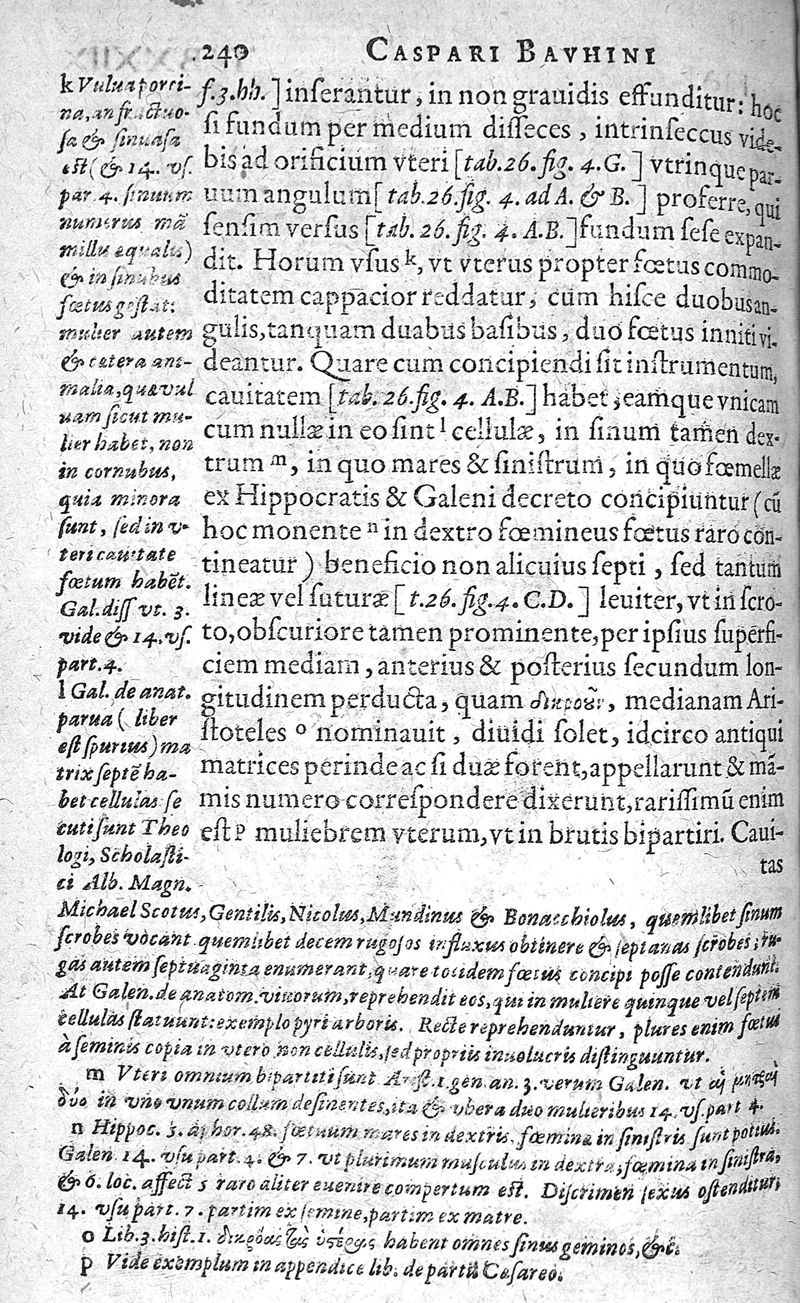 240 CASPARI BAVHINI
f.3.hh.] inserantur, in non grauidis effunditur: hoc
si fundum per medium disseces, intrinseccus vide-
bis ad orificium vteri [tab.26.fig. 4.G.] vtrinque par-
uum angulum [tab.26.fig. 4. ad A. & B.] proferre, qui
sensim versus [tab. 26. fig. 4. A.B.] fundum sese expan-
dit. Horum vsus k, vt vterus propter fœtus commo-
ditatem cappacior reddatur, cùm hisce duobus an-
gulis, tanquam duabus basibus, duo fœtus inniti vi-
deantur. Quare cum concipiendi sit instrumentum,
cauitatem [tab. 26. fig. 4. A.B.] habet, eamque vnicam
cum nullæ in eo sint l cellulæ, in sinum tamen dex-
trum m, in quo mares & sinistrum, in quo fœmellæ
ex Hippocratis & Galeni decreto concipiuntur (cū
hoc monente n in dextro fœmineus fœtus raro con-
tineatur) beneficio non alicuius septi, sed tantum
lineæ vel suturæ [t.26. fig.4. C.D.] leuiter, vt in scro-
to, obscuriore tamen prominente, per ipsius superfi-
ciem mediam, anterius & posterius secundum lon-
gitudinem perducta, quam medianam Ari-
stoteles o nominauit, diuidi solet, idcirco antiqui
matrices perinde ac si duæ forent, appellarunt & mā-
mis numero correspondere dixerunt, rarissimū enim
est p muliebrem vterum, vt in brutis bipartiri. Caui-
tas
k Vulua porci-
na, anfractuo-
sa & sinuasa
est (& 14. vs.
par. 4. sinuum
numerus mā
millis equalis)
& in sinubus
fœtus gestat:
mulier autem
& cætera ani-
malia, quæ vul
uam sicut mu-
lier habet, non
in cornubus,
quia minora
sunt, sed in v-
teri cauitate
fœtum habēt.
Gal. diss vt. 3.
vide & 14. vs.
part. 4.
l Gal. de anat.
parua (liber
est spurius) ma
trix septē ha-
bet cellulas se
cuti sunt Theo
logi, Scholasti-
ci Alb. Magn.
Michael Scotus, Gentilis, Nicolus, Mundinus & Bonacchiolus, quemlibet sinum
scrobes vocant quemlibet decem rugosos influxus obtinere & septenas scrobes; ru-
gas autem septuaginta enumerant, quare totidem fœtus concipi posse contendunt.
At Galen. de anatom. viuorum, reprehendit eos, qui in muliere quinque vel septem
cellulas statuunt: exemplo pyri arboris. Recte reprehenduntur, plures enim fœtus
à seminis copia in vtero non cellulis, sed propriis inuolucris distinguuntur.
m Vteri omnium bipartiti sunt Arist. 1. gen. an. 3. verum Galen. vt
duo in vno vnum collum desinentes, ita & vbera duo mulieribus 14. vs. part 4.
n Hippoc. 5. aphor. 48. fœtuum mares in dextris, fœmina in sinistris sunt potius.
Galen. 14. vsu part. 4. & 7. vt plurimum musculus in dextra, fœmina in sinistra,
& 6. loc. affect 5 raro aliter euenire compertum est. Discrimen sexus ostenditur,
14. vsu part. 7. partim ex semine, partim ex matre.
o Lib. 3. hist. 1. habent omnes sinus geminos, &c.
p Vide exemplum in appendice lib. de partu Cæsareo.